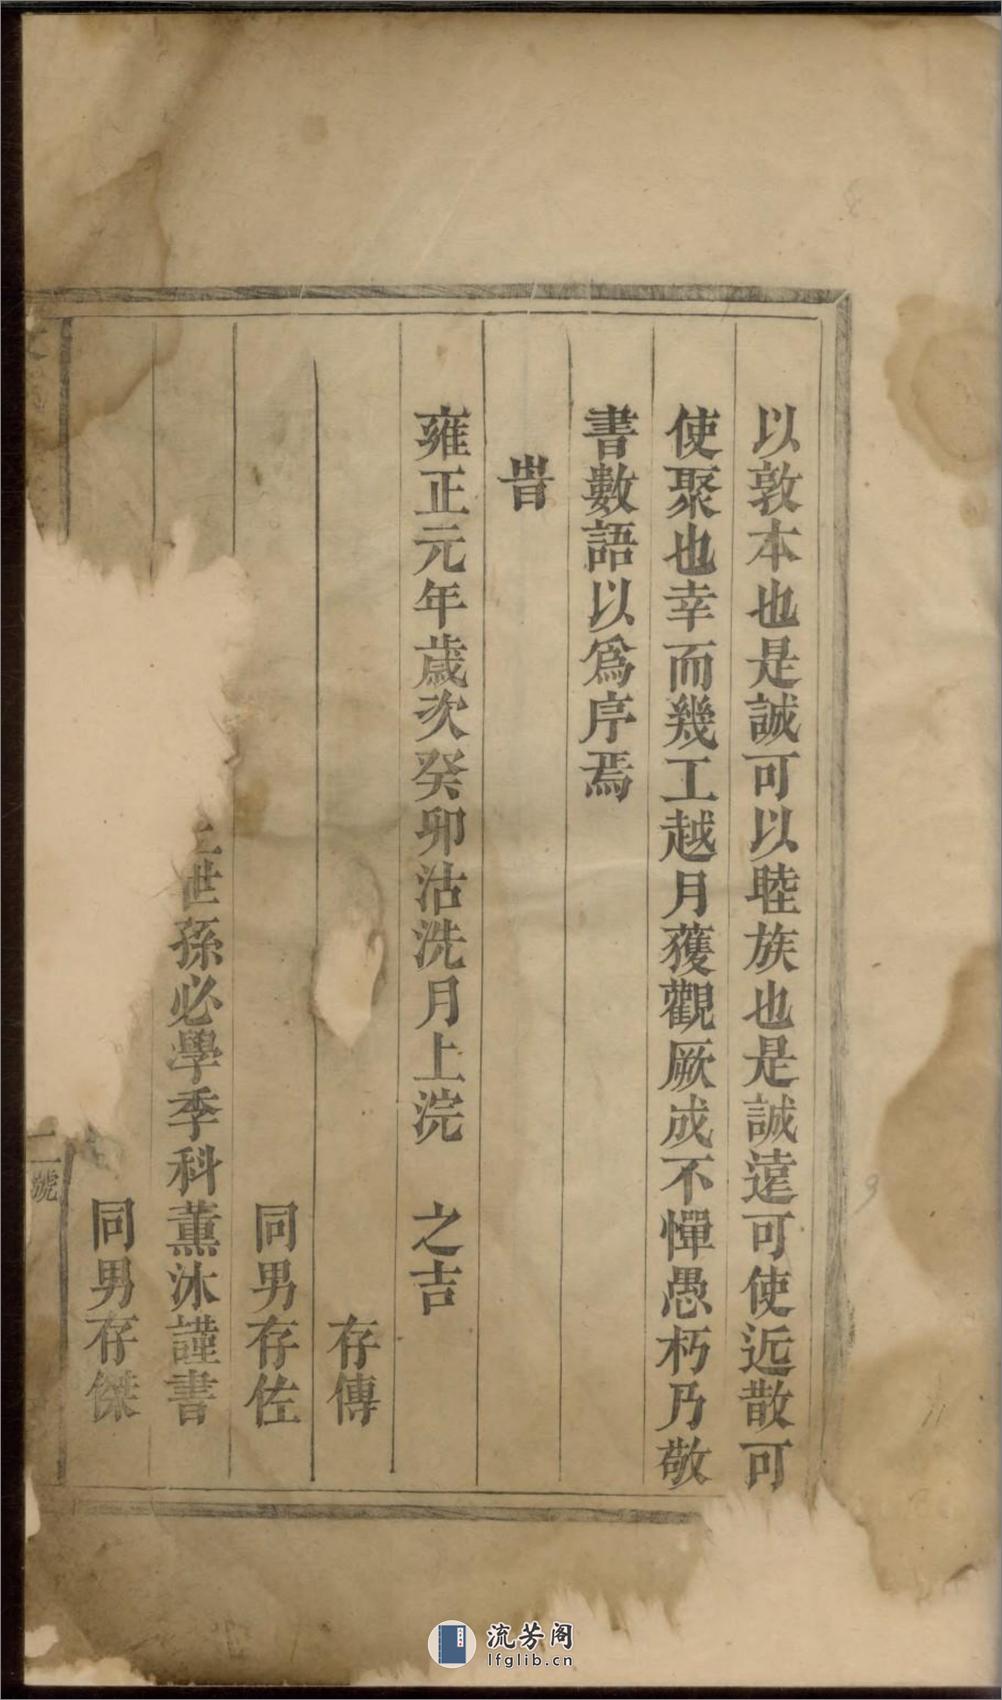 以敦本也是誠可以睦族也是誠遠可使近散可
使聚也幸而幾工越月獲觀厥成不憚愚朽乃敬
書數語以爲序焉
旹
雍正元年歲次癸卯沽洗月上浣 之吉
存傳
同男存佐
世孫必學季科薰沐謹書
同男存傑
二號
流芳阁
lfglib.cn
8
9
11